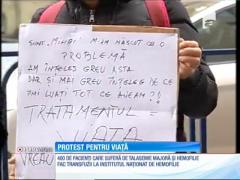 SUNT "MINOR" M-AM NĂSCUT CU O
PROBLEMĂ
AM ÎNȚELES GREU ASTA
DAR ȘI MAI GREU ÎNȚELEG DE CE
ÎMI LUAȚI TOT CE AVEAM?!
TRATAMENTUL =
VIAȚĂ
VREAU
PROTEST PENTRU VIAȚĂ
400 DE PACIENȚI CARE SUFERĂ DE TALASEMIE MAJORĂ ȘI HEMOFILIE
FAC TRANSFUZII LA INSTITUTUL NAȚIONAL DE HEMOFILIE